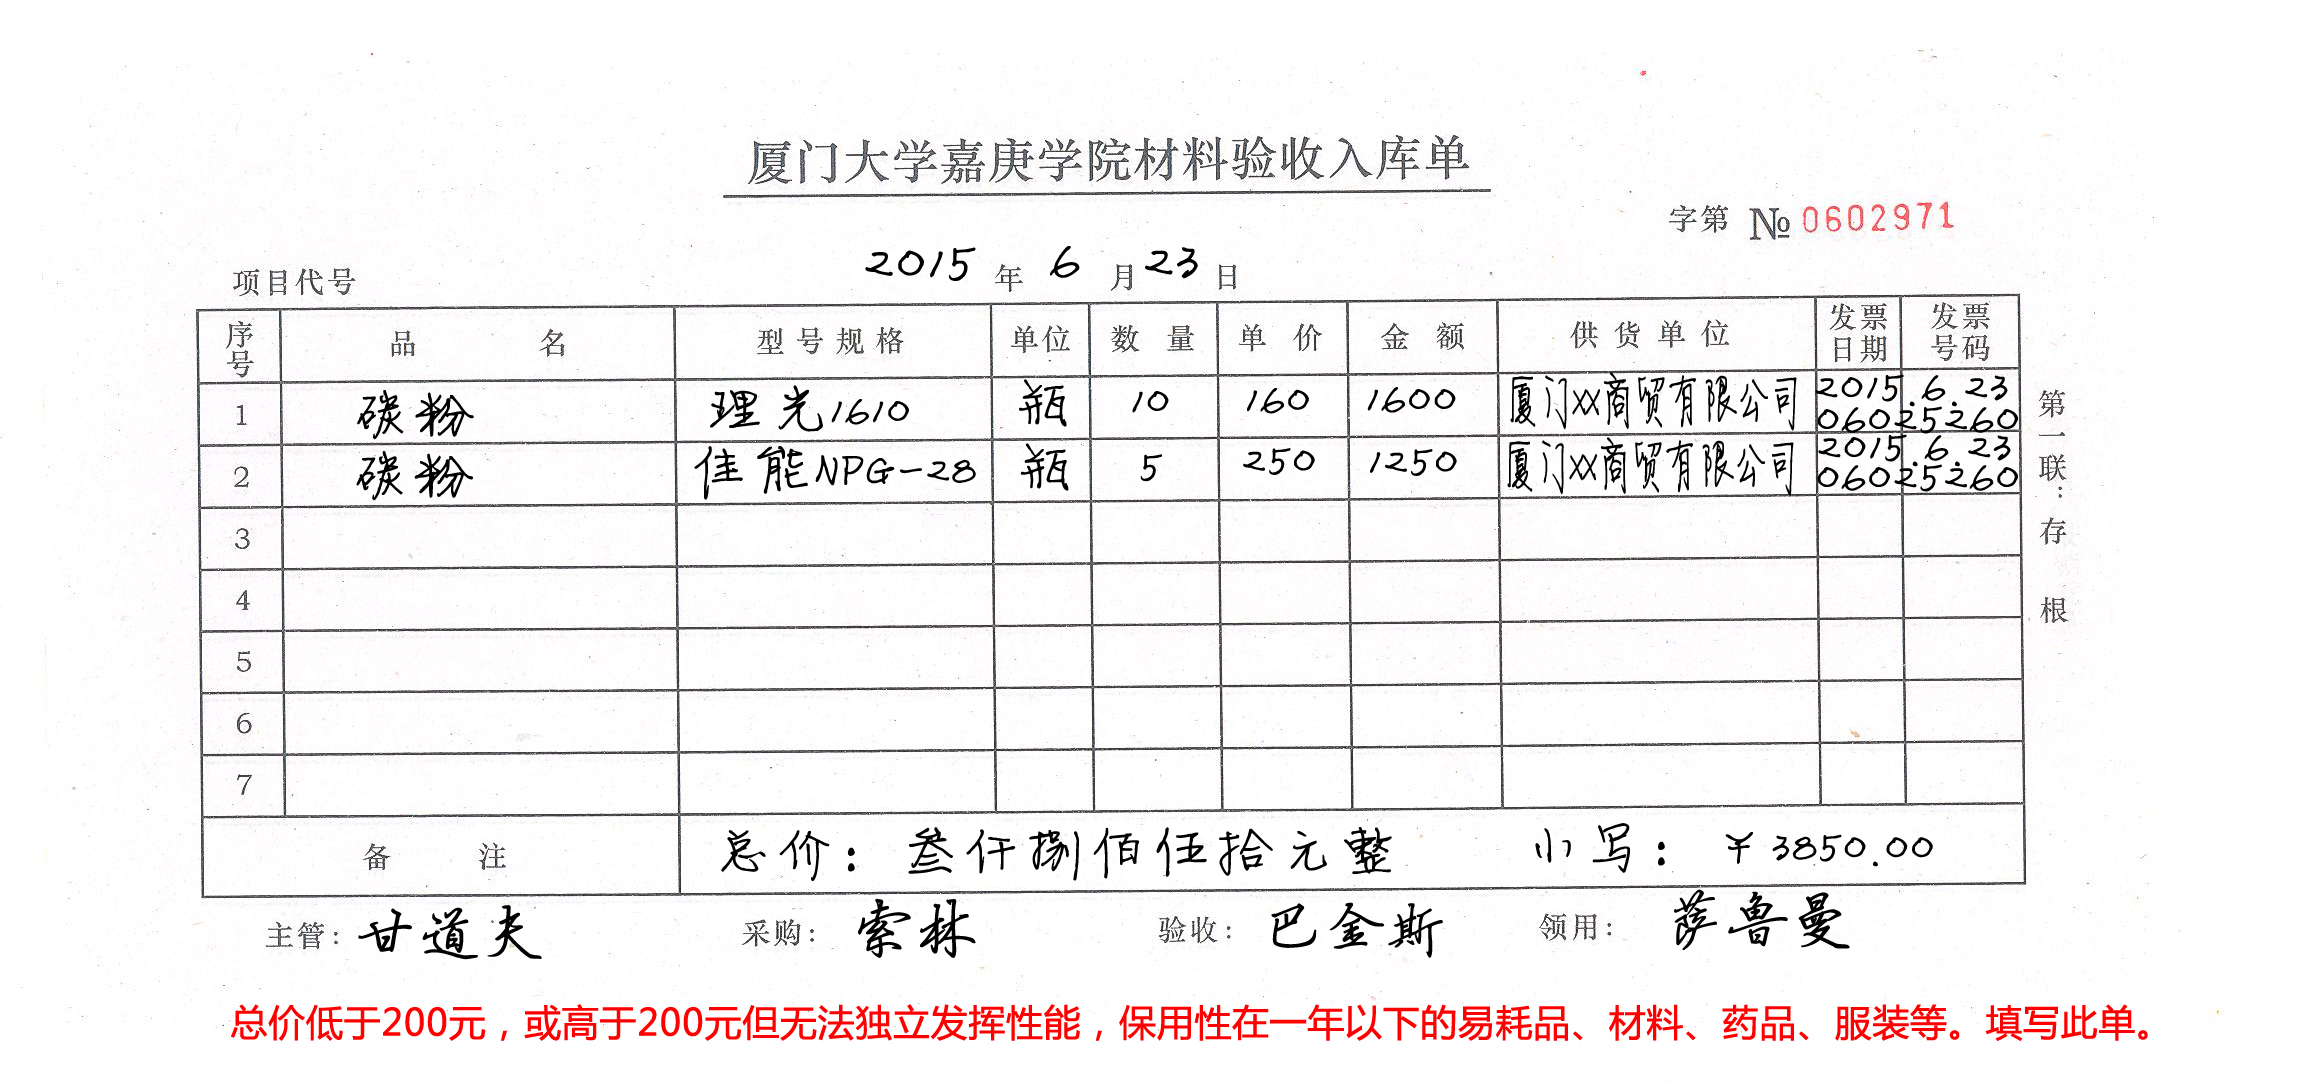 厦门大学嘉庚学院材料验收入库单
字第 № 0602971
项目代号 2015 年 6 月 23 日
序号 品名 型号规格 单位 数量 单价 金额 供货单位 发票日期 发票号码
1 碳粉 理光1610 瓶 10 160 1600 厦门××商贸有限公司 2015.6.23 06025260
2 碳粉 佳能NPG-28 瓶 5 250 1250 厦门××商贸有限公司 2015.6.23 06025260
3
4
5
6
7
备注 总价：叁仟捌佰伍拾元整 小写：¥3850.00
第一联：存根
主管：甘道夫 采购：索林 验收：巴金斯 领用：萨鲁曼
总价低于200元，或高于200元但无法独立发挥性能，保用性在一年以下的易耗品、材料、药品、服装等。填写此单。